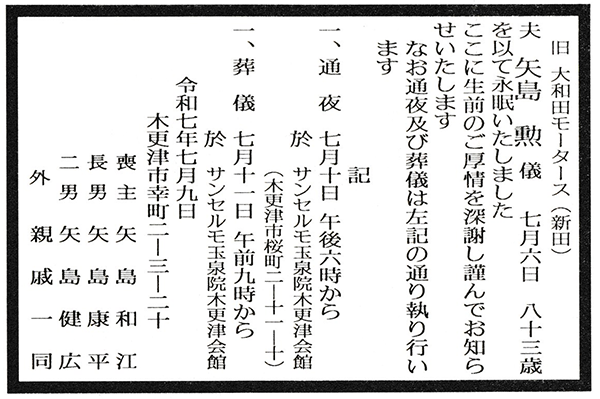 旧 大和田モータース（新田）
夫 矢島 勲 儀 七月六日 八十三歳
を以て永眠いたしました
ここに生前のご厚情を深謝し謹んでお知ら
せいたします
なお通夜及び葬儀は左記の通り執り行い
ます
記
一、通夜 七月十日 午後六時から
於 サンセルモ玉泉院木更津会館
（木更津市桜町二―十一―十）
一、葬儀 七月十一日 午前九時から
於 サンセルモ玉泉院木更津会館
令和七年七月九日
木更津市幸町二―三―二十
喪主 矢島和江
長男 矢島康平
二男 矢島健広
外 親戚一同